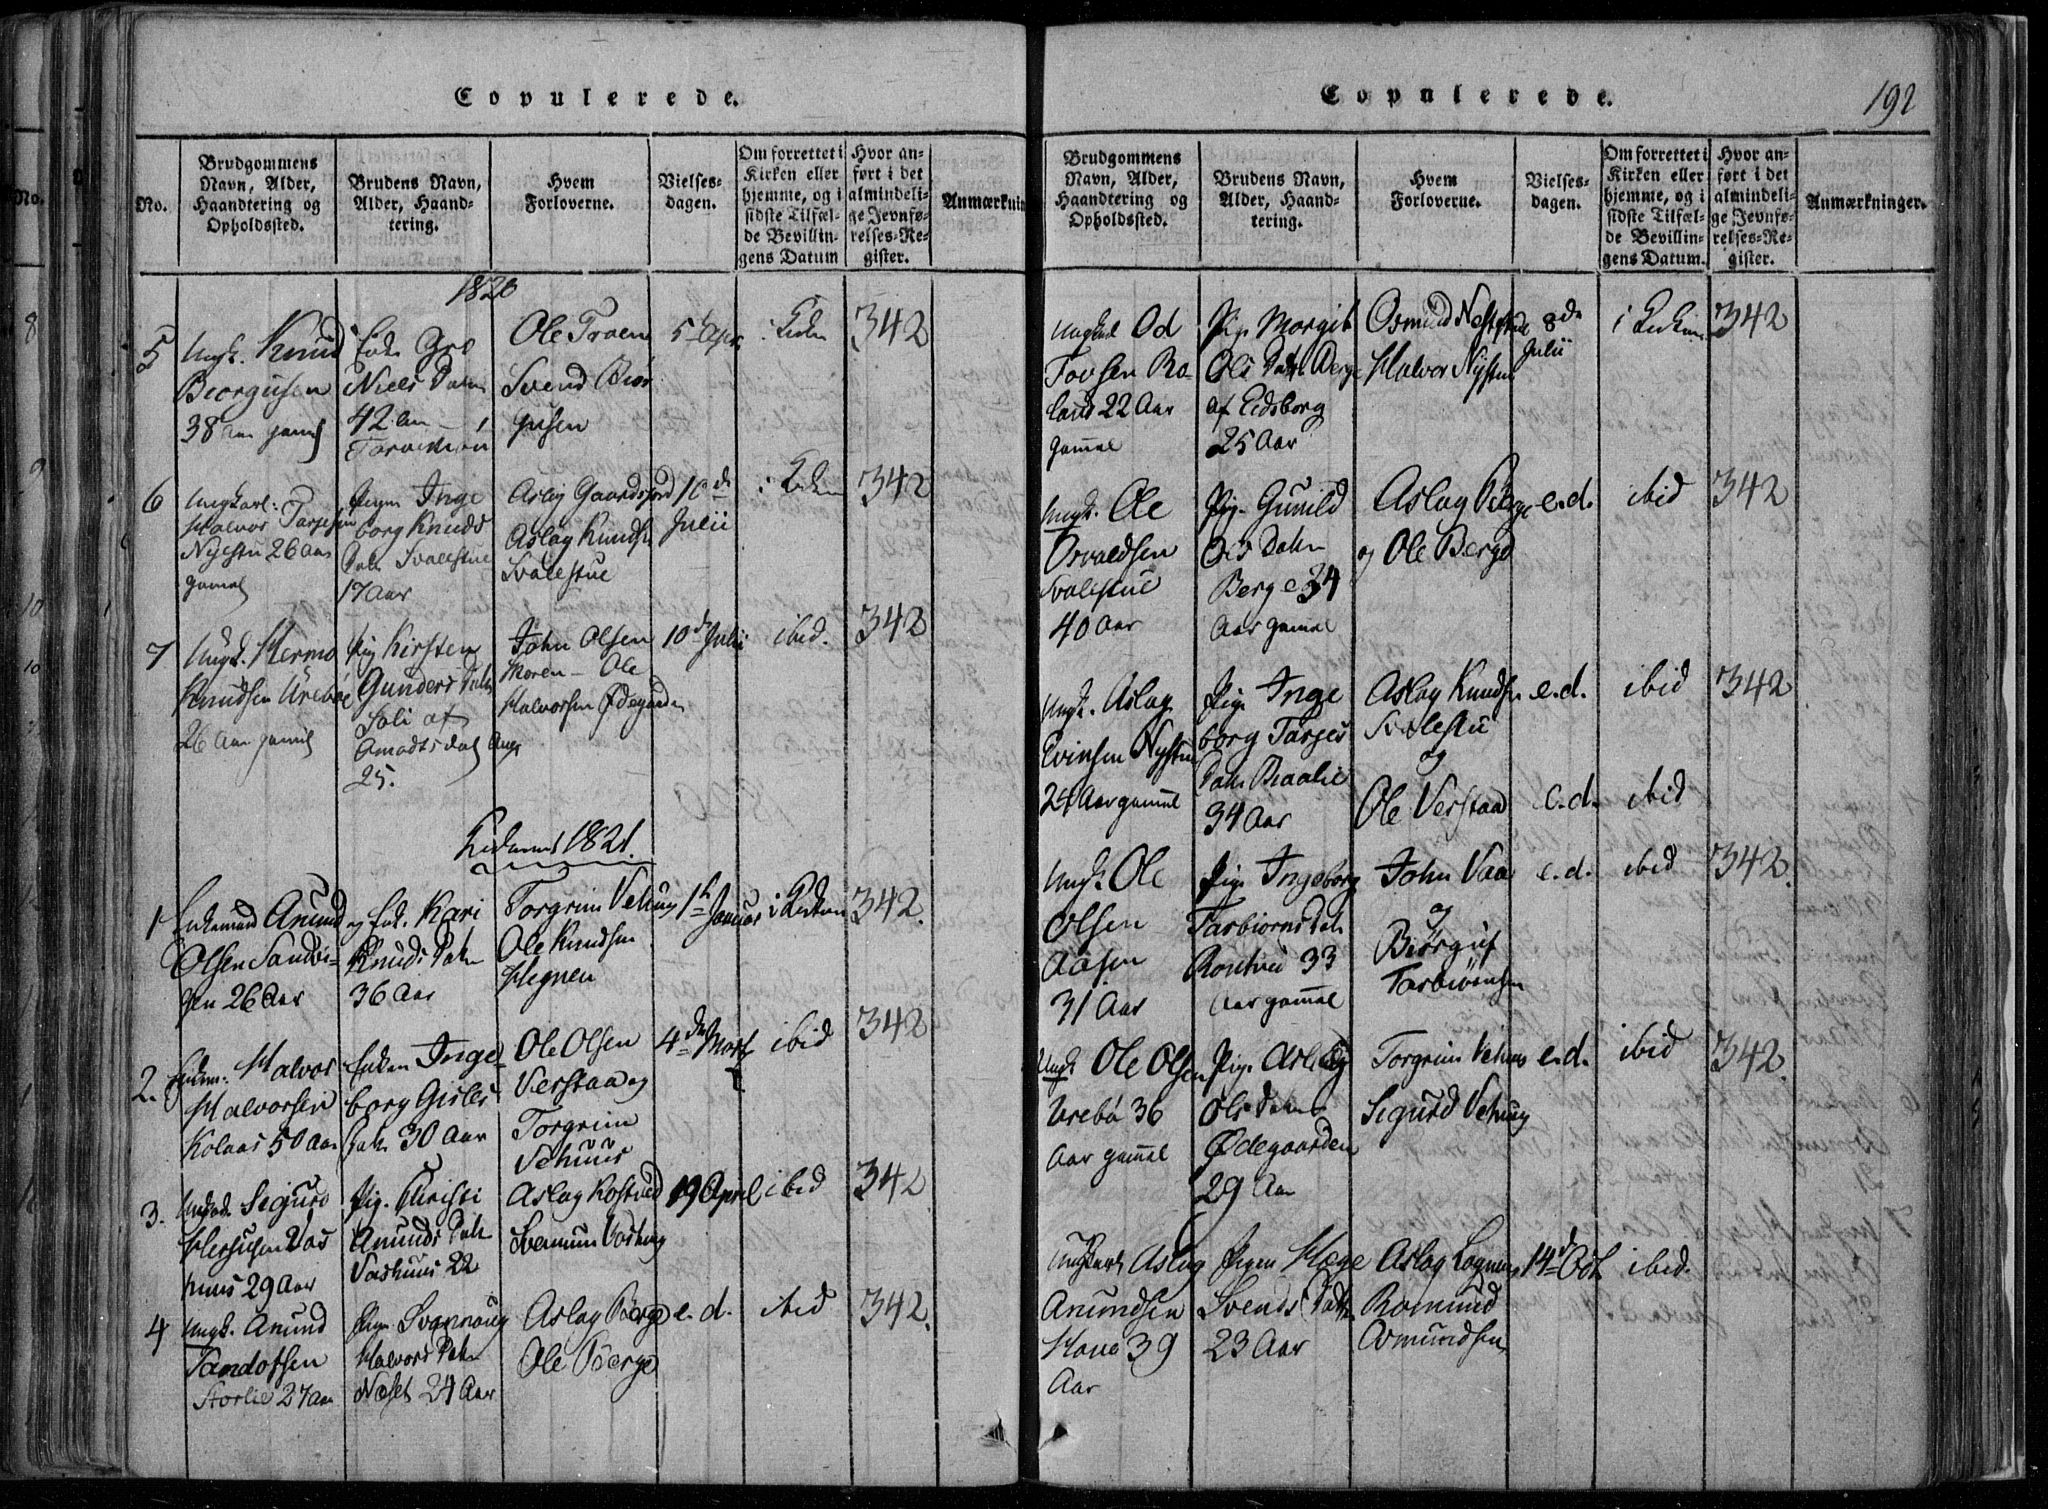 Copulerede.
No.
Brudgommens Navn, Alder, Haandtering og Opholdssted.
Brudens Navn, Alder, Haandtering.
Hvem Forloverne.
Vielsesdagen.
Om forrettet i Kirken eller hjemme, og i sidste Tilfælde Bevillingens Datum
Hvor anført i det almindelige Jevnførelses-Register.
Anmærkning
1820
5 Ungk. Knud
Biorgusen
38 Aar gamel
Enke Gro
Niels Datter
42 Aar
Ole Troen
Svend Biør
gusen
5te Apr.
i Kirken
342
6 Ungkarl: Halvor Tarjesen
Nystu 26 Aar
gamel
Pigen Inge
borg Knuds
Datr Svalestue
17 Aar
Aslag Gaardsjord
Aslag Knudsen
Svalestue
10de
Julii
i Kirken
342
7 Ungk. Hermo
Knudsen Urebøe
26 Aar gamel
Pig Kirsten
Gunders Datr
Loli af
Amodtsdal Aar
25.
John Olsen
Moren - Ole
Halvorsen Ødegaarden
10de Julii
ibid.
342
1821.
1 Enkemand Anund
Olsen Sandvi-
gen 26 Aar
og Enk. Kari
Knuds Datr
36 Aar
Torgrim Vehuus
Ole Knudsen
Hegnen
1te Januar
i Kirken
342.
2. Halvor
Halvorsen
Kolaas 50 Aar
Enken Inge
borg Gisles
Datr 30 Aar
Ole Olsen
Verstaa og
Torgrim
Vehuus
4de Mart
ibid
342
3. Sigurd
Hersusen Vas
huus 29 Aar
Pig. Christi
Anunds Datr
Vashuus 22
Aslag Rostved
19 April
ibid
342
4 Ungk. Anund
Tandofsen
Storlie 27 Aar
Pige Svannoug
Halvors Datr
Næset 24 Aar
Aslag Berge
Ole Berge
e. d.
ibid
342.
Copulerede.
192
Brudgommens Navn, Alder, Haandtering og Opholdssted.
Brudens Navn, Alder, Haandtering.
Hvem Forloverne.
Vielsesdagen.
Om forrettet i Kirken eller hjemme, og i sidste Tilfælde Bevillingens Datum.
Hvor anført i det almindelige Jevnførelses-Register.
Anmærkninger.
Ungkarl Od
Tovsen Ro-
land 22 Aar
gamel
Pige Margit
Ols Datr Berge
af Eidsborg
25 Aar
Osmund
Halvor Nystue
8de
Julii
i Kirken
342
Ungk. Ole
Osvaldsen
Svalestue
40 Aar
Pig. Gunild
Ols Datter
Berge 34
Aar gamel
Aslag Berge
og Ole Berge
e. d.
ibid
342
Ungk. Aslag
Evinsen Nystue
24 Aar gammel
Pige Inge
borg Tarjes
Datr Braalie
34 Aar
Aslag Knudsen
Svalestu
og
Ole Verstaa
e. d.
ibid
342
e. d.
ibid
Ungk. Ole
Olsen
Aasen
31 Aar
Pige Ingeborg
Tarbiørns Datr
Rostvei 33
Aar gammel
John Vaa
og
Biørguf
Tarbiørnsen
e. d.
ibid
342.
Ungk Ole Olsen
Urebø 36
Aar gammel
Pige Aslog
Ols Datr
Ødegaarden
29 Aar
Torgrim Vehuus
Sigurd Vehuus
e. d.
ibid
342.
Ungkarl Aslag
Anundsen
39
Aar
Pigen Hæge
Svends Datr
23 Aar
Aslag
Romund
Asmundsen
14de Oct.
ibid.